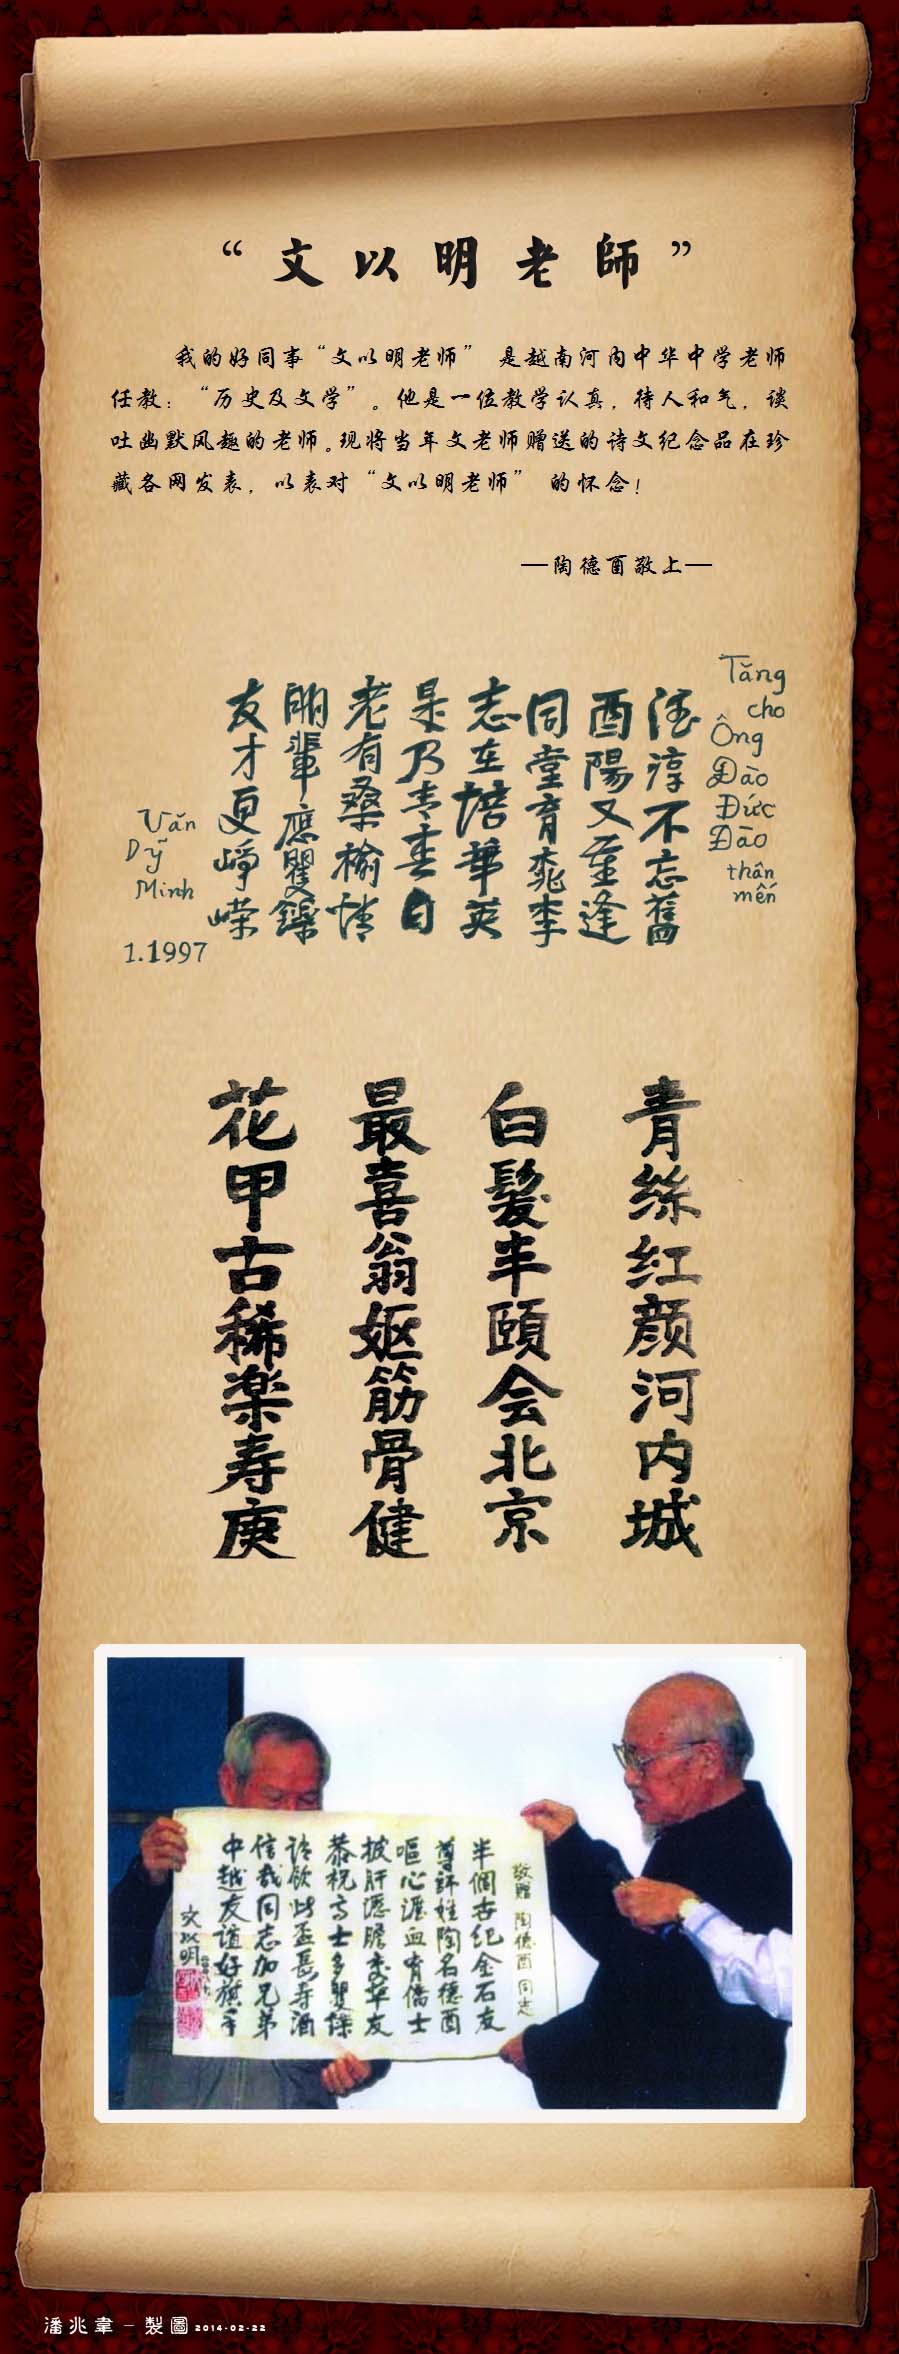 “文以明老師”
我的好同事“文以明老师” 是越南河内中华中学老师
任教：“历史及文学”。他是一位教学认真，待人和气，谈
吐幽默风趣的老师。现将当年文老师赠送的诗文纪念品在珍
藏各网发表，以表对“文以明老师” 的怀念！
—陶德酉敬上—
Tặng
cho
Ông
Đào
Đức
Đào
thân
mến
淳不忘舊
酉陽又重逢
同堂育桃李
志在培華英
是乃青春自
老有桑榆情
朋輩應矍鑠
友才更崢嶸
Văn
Dỹ
Minh
1.1997
青絲红颜河内城
白髮半頤会北京
最喜翁妪筋骨健
花甲古稀楽寿庚
敬贈 陶德酉 同志
半個世纪金石友
尊許姓陶名德酉
嘔心瀝血育僑士
披肝瀝膽交華友
恭祝高士多矍鑠
請飲此盃長寿酒
信哉同志加兄弟
中越友谊好旗手
文以明
潘兆韋－製圖 2014-02-22